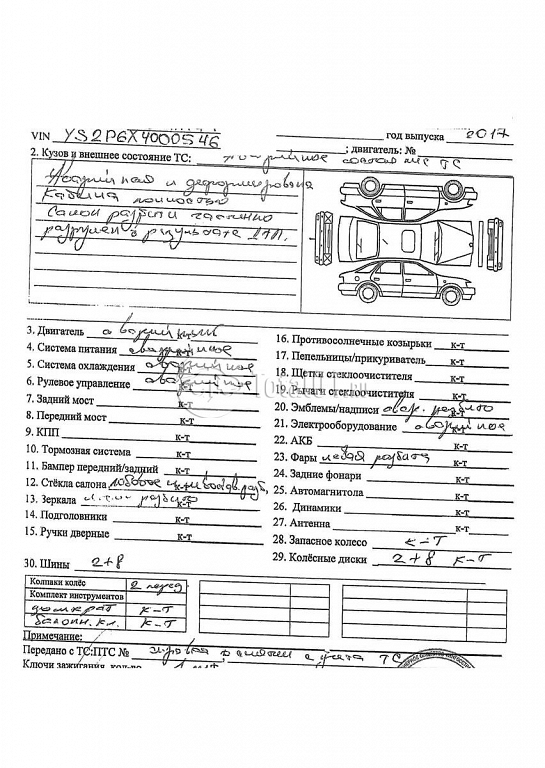 VIN YS2P6X4000546 год выпуска 2017
2. Кузов и внешнее состояние ТС: состояние ТС ; двигатель: №
и деформирована
Кабина полностью
Салон разбит частично
разрушен в результате ДТП.
3. Двигатель аварийный к-т
4. Система питания аварийное к-т
5. Система охлаждения аварийное к-т
6. Рулевое управление аварийное к-т
7. Задний мост к-т
8. Передний мост к-т
9. КПП к-т
10. Тормозная система к-т
11. Бампер передний/задний к-т
12. Стёкла салона лобовое
13. Зеркала разбито
14. Подголовники к-т
15. Ручки дверные к-т
16. Противосолнечные козырьки к-т
17. Пепельницы/прикуриватель к-т
18. Щетки стеклоочистителя к-т
19. Рычаги стеклоочистителя к-т
20. Эмблемы/надписи авар. разбито
21. Электрооборудование аварийное
22. АКБ к-т
23. Фары левая разбита
24. Задние фонари к-т
25. Автомагнитола к-т
26. Динамики к-т
27. Антенна к-т
28. Запасное колесо к-т
29. Колёсные диски 2+8 к-т
30. Шины 2+8
Колпаки колёс 2 перед
Комплект инструментов
домкрат к-т
балонн. кл. к-т
Примечание:
Передано с ТС:ПТС № с учета ТС
Ключи зажигания, кол-во 1 шт